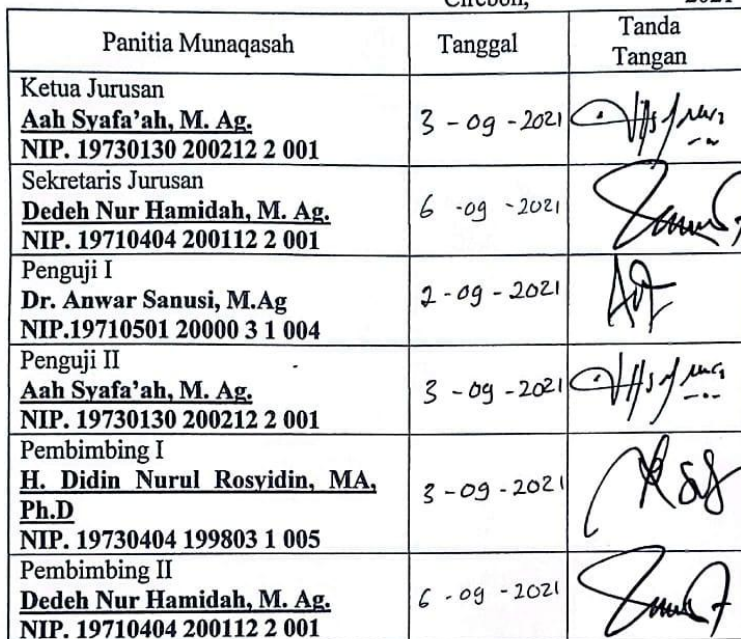 Cirebon, 2021
Panitia Munaqasah Tanggal Tanda
Tangan
Ketua Jurusan
Aah Syafa'ah, M. Ag.
NIP. 19730130 200212 2 001
3 - 09 - 2021
Sekretaris Jurusan
Dedeh Nur Hamidah, M. Ag.
NIP. 19710404 200112 2 001
6 - 09 - 2021
Penguji I
Dr. Anwar Sanusi, M.Ag
NIP.19710501 20000 3 1 004
2 - 09 - 2021
Penguji II
Aah Syafa'ah, M. Ag.
NIP. 19730130 200212 2 001
3 - 09 - 2021
Pembimbing I
H. Didin Nurul Rosyidin, MA,
Ph.D
NIP. 19730404 199803 1 005
3 - 09 - 2021
Pembimbing II
Dedeh Nur Hamidah, M. Ag.
NIP. 19710404 200112 2 001
6 - 09 - 2021